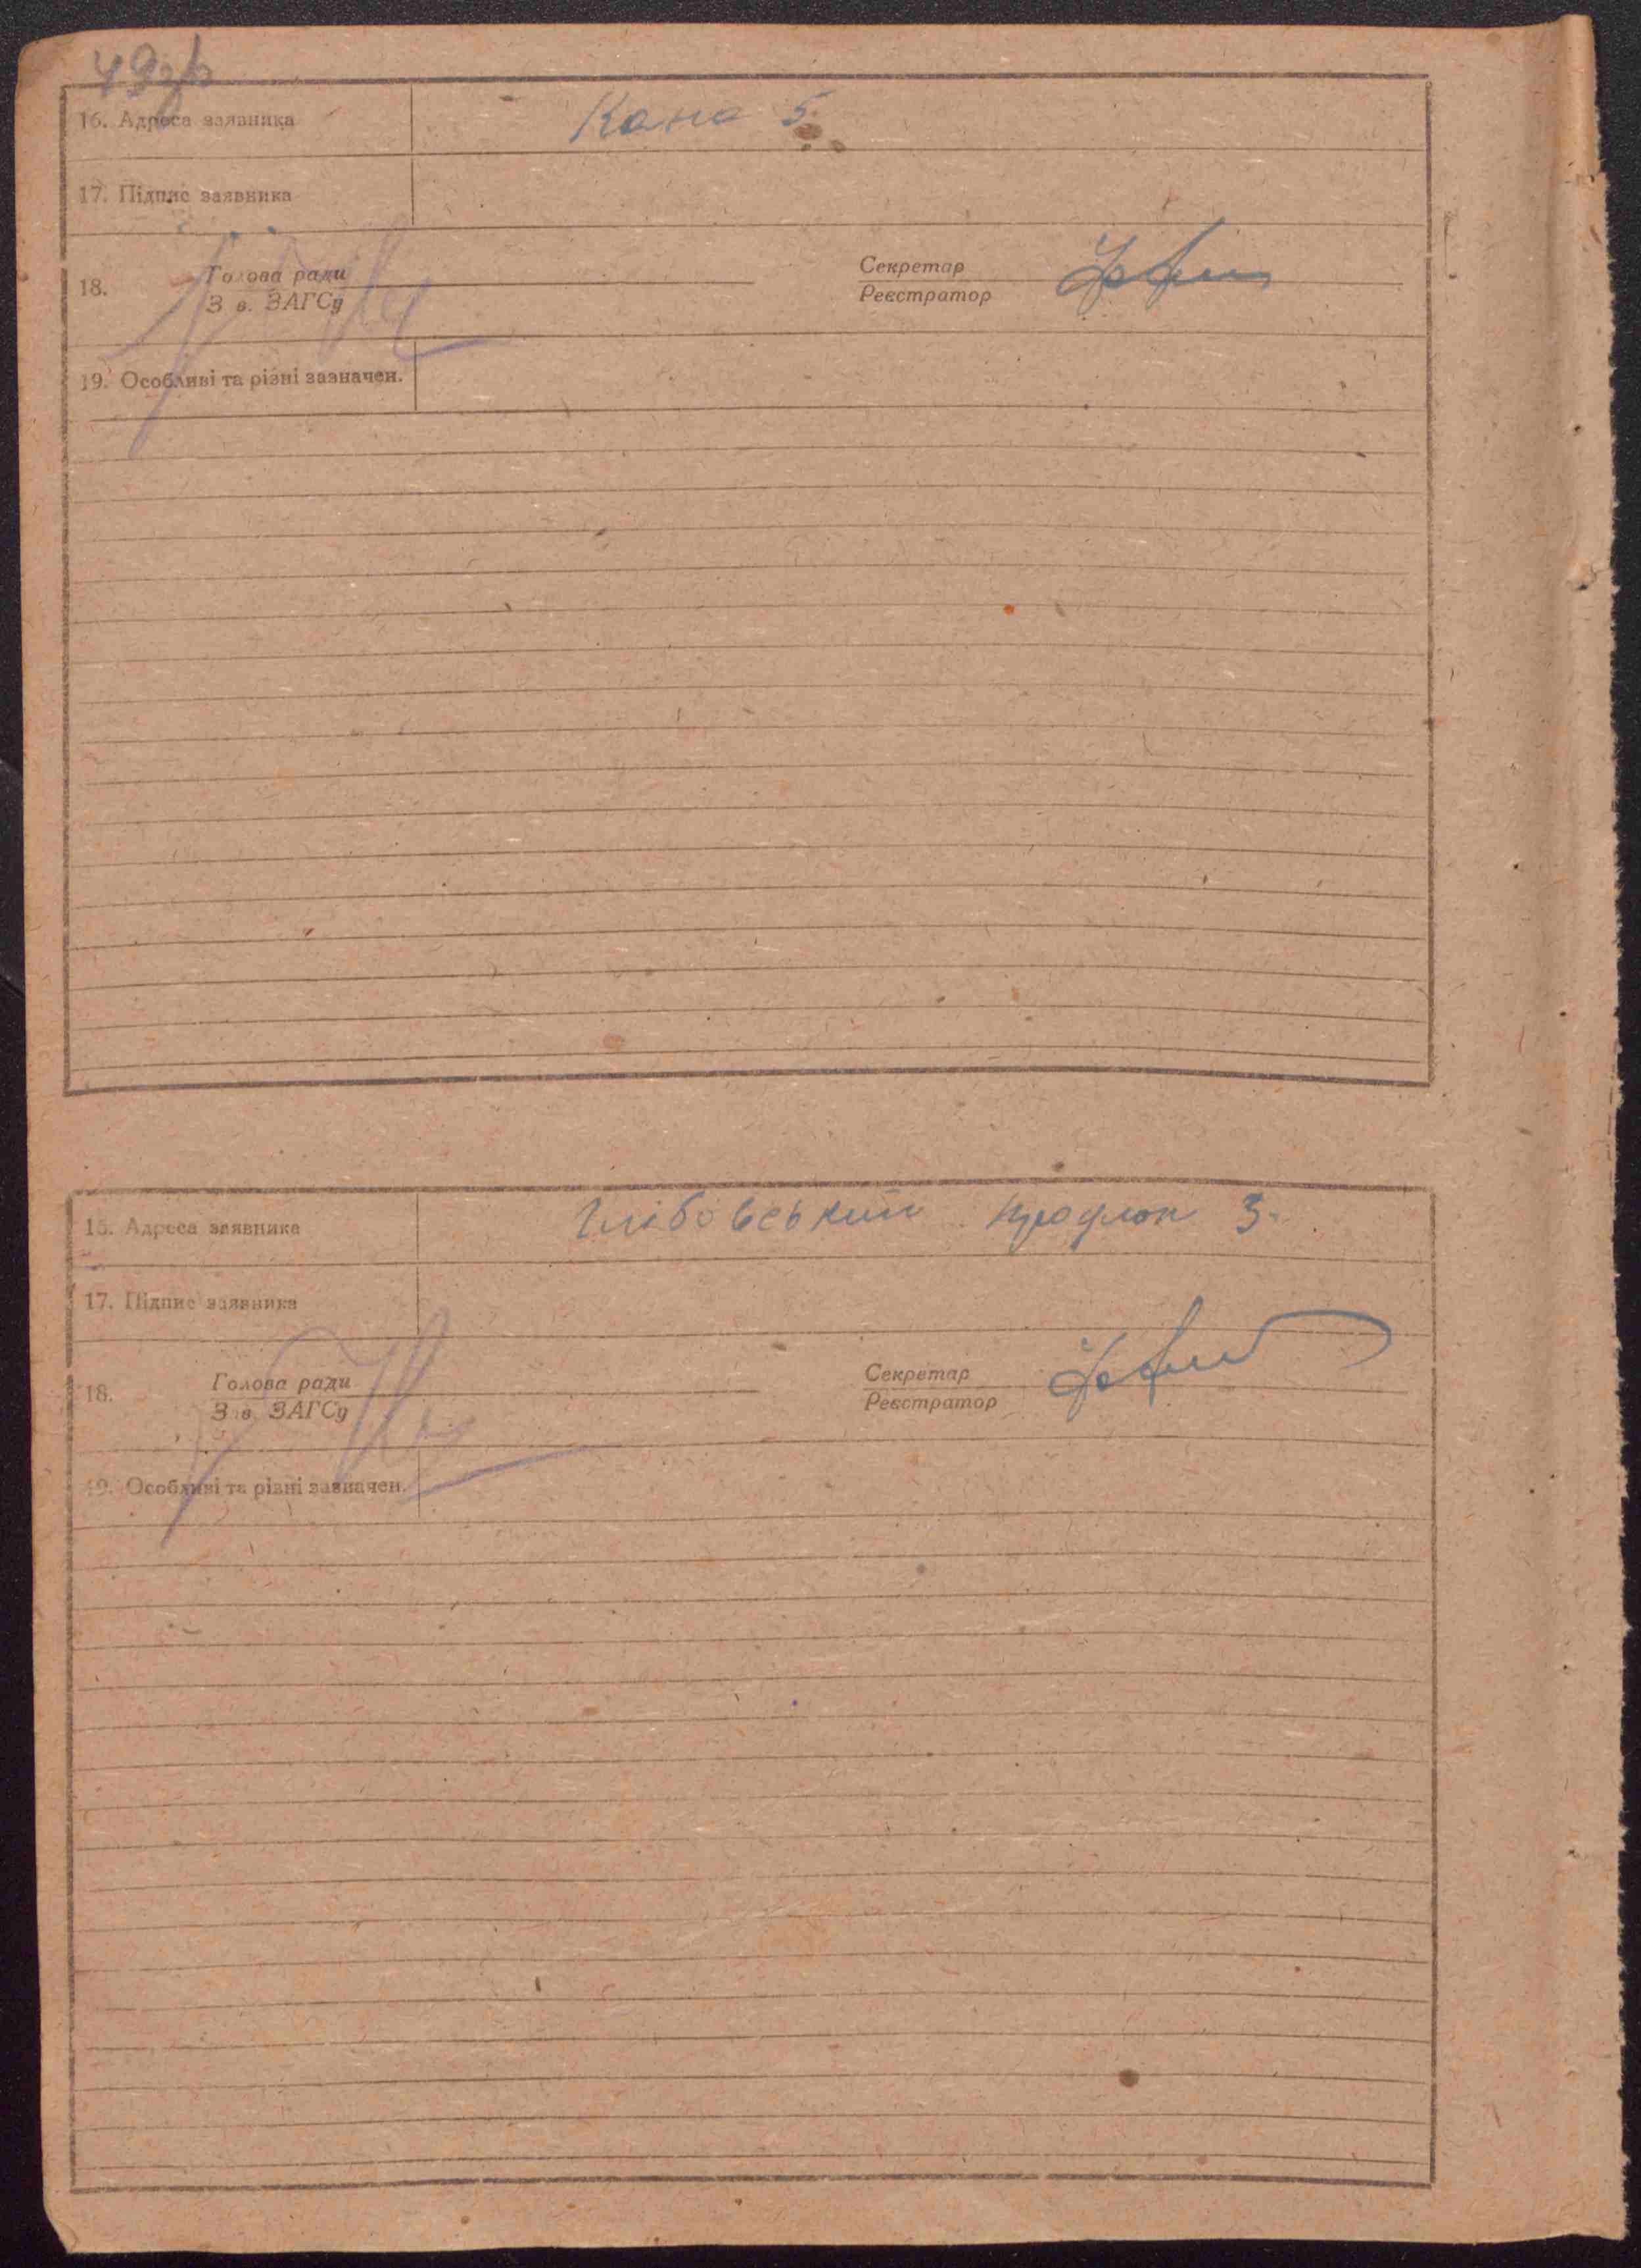 49зв
16. Адреса заявника Кана 5.
17. Підпис заявника
18. Голова ради Секретар
З в. ЗАГСу Реєстратор
19. Особливі та різні зазначен.
16. Адреса заявника 3
17. Підпис заявника
18. Голова ради Секретар
З в. ЗАГСу Реєстратор
19. Особливі та різні зазначен.